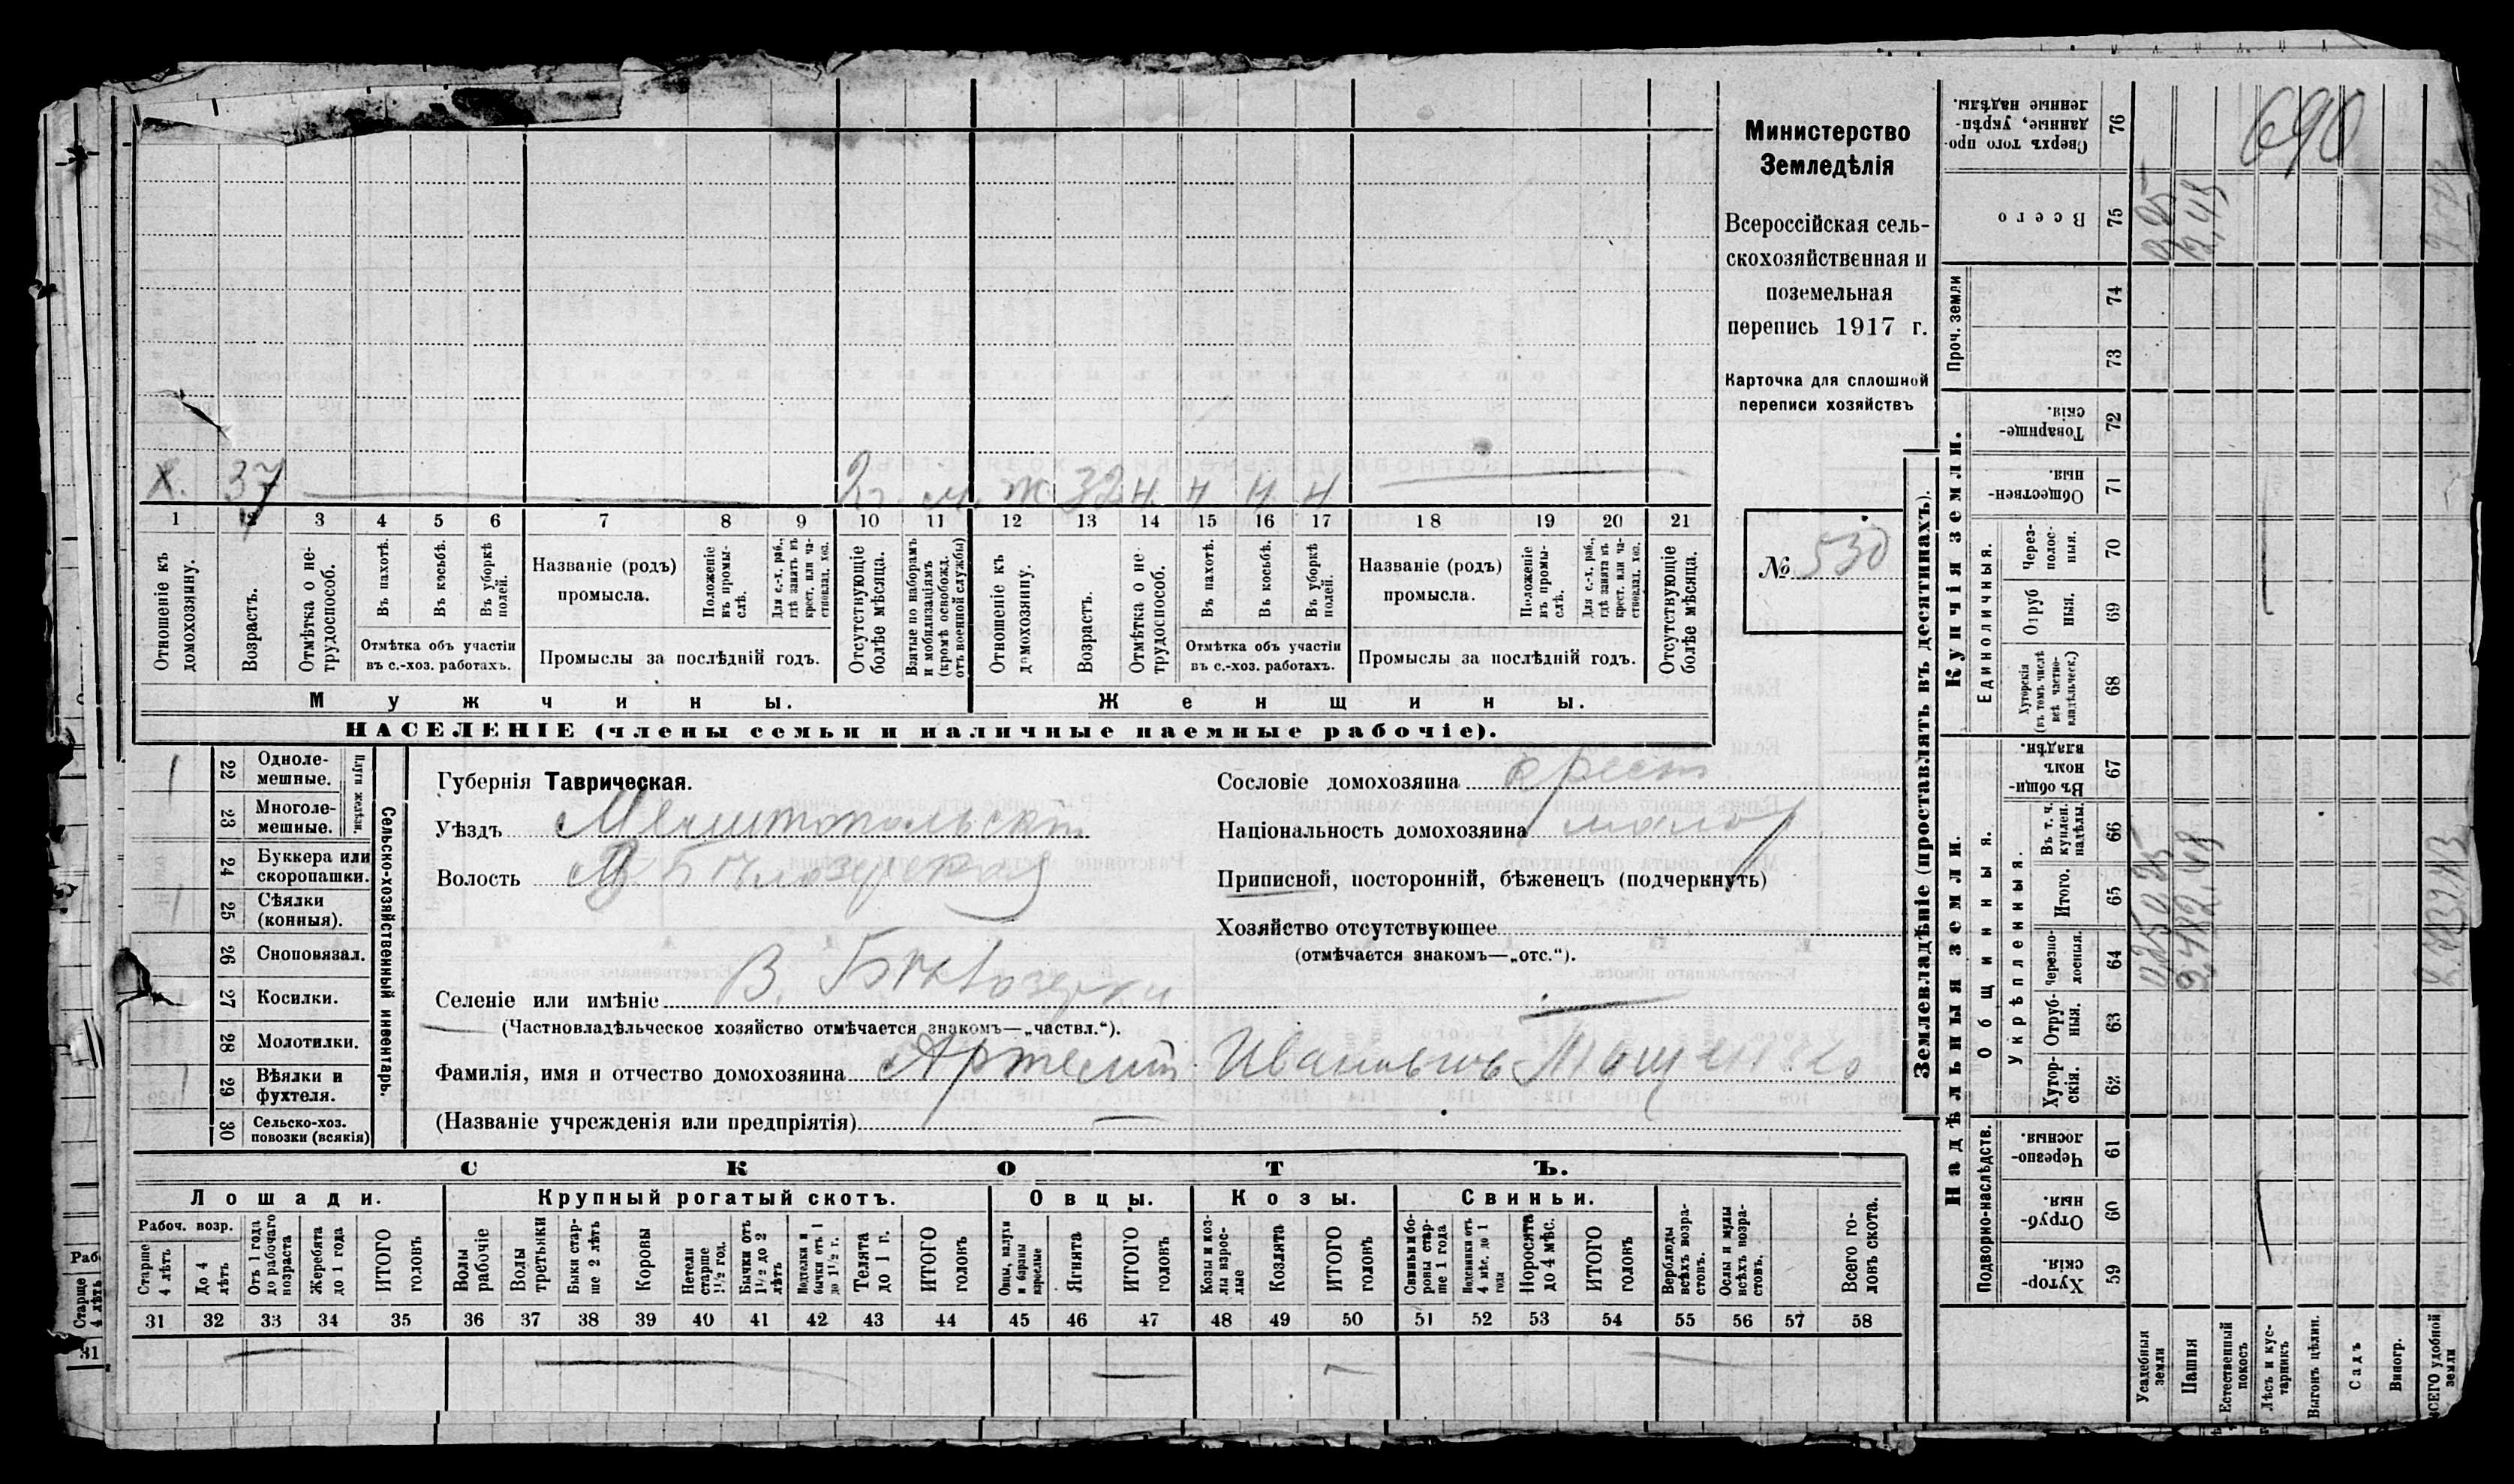 Х. 37 2 г. м. Ж. 32 н. н н. н
1 2 3 4 5 6 7 8 9 10 11 12 13 14 15 16 17 18 19 20 21
Отношеніе къ домохозяину.
Возрастъ.
Отмѣтка о не-трудоспособ.
Въ пахотѣ.
Въ косьбѣ.
Въ уборкѣ полей.
Отмѣтка объ участіи
въ с.-хоз. работахъ.
Названіе (родъ)
промысла.
Положеніе въ промы-слѣ.
Для с.-х. раб., гдѣ занятъ въ крест. или ча-стновлад. хоз.
Промыслы за послѣдній годъ.
Отсутствующіе болѣе мѣсяца.
Взятые по наборамъ и мобилизаціямъ (кромѣ освобожд. отъ военной службы)
Отношеніе къ домохозяину.
Возрастъ.
Отмѣтка о не-трудоспособ.
Въ пахотѣ.
Въ косьбѣ.
Въ уборкѣ полей.
Отмѣтка объ участіи
въ с.-хоз. работахъ.
Названіе (родъ)
промысла.
Положеніе въ промы-слѣ.
Для с.-х. раб., гдѣ занята въ крест. или ча-стновлад. хоз.
Промыслы за послѣдній годъ.
Отсутствующіе болѣе мѣсяца.
Мужчины. Женщины.
НАСЕЛЕНІЕ (члены семьи и наличные наемные рабочіе).
Министерство
Земледѣлія
Всероссійская сель-
скохозяйственная и
поземельная
перепись 1917 г.
Карточка для сплошной
переписи хозяйствъ
№ 530
22 Одноле-мешные.
23 Многоле-мешные.
Плуги желѣзн.
24 Буккера или скоропашки.
25 Сѣялки (конныя).
26 Сноповязал.
27 Косилки.
28 Молотилки.
29 Вѣялки и фухтеля.
30 Сельско-хоз. повозки (всякія)
Сельско-хозяйственный инвентарь.
Губернія Таврическая.
Уѣздъ Мелитопольскій
Волость В. Бѣлозерская
Селеніе или имѣніе В. Бѣлозерка
(Частновладѣльческое хозяйство отмѣчается знакомъ—„частвл.“).
Фамилія, имя и отчество домохозяина Артемій Ивановичъ
(Названіе учрежденія или предпріятія)
Сословіе домохозяина крест
Національность домохозяина малор
Приписной, посторонній, бѣженецъ (подчеркнуть)
Хозяйство отсутствующее
(отмѣчается знакомъ—„отс.“).
СКОТЪ.
Лошади. Крупный рогатый скотъ. Овцы. Козы. Свиньи.
Рабоч. возр.
Старше 4 лѣтъ
До 4 лѣтъ
Отъ 1 года до рабочаго возраста
Жеребята до 1 года
ИТОГО головъ
Волы рабочіе
Волы третьяки
Быки стар-ше 2 лѣтъ
Коровы
Нетели старше 1½ год.
Бычки отъ 1½ до 2 лѣтъ
Подтелки и бычки отъ 1 до 1½ г.
Телята до 1 г.
ИТОГО головъ
Овцы, валухи и бараны взрослые
Ягнята
ИТОГО головъ
Козы и коз-лы взрос-лые
Козлята
ИТОГО головъ
Свиньи и бо-ровы стар-ше 1 года
Подсвинки отъ 4 мѣс. до 1 года
Поросята до 4 мѣс.
ИТОГО головъ
Верблюды всѣхъ возра-стовъ.
Ослы и мулы всѣхъ возра-стовъ.
Всего го-ловъ скота.
31 32 33 34 35 36 37 38 39 40 41 42 43 44 45 46 47 48 49 50 51 52 53 54 55 56 57 58
Землевладѣніе (проставлять въ десятинахъ).
Купчія земли.
Надѣльныя земли.
Сверхъ того про-данные, укрѣп-ленные надѣлы. 76
690
Всего 75
Проч. земли
74
73
Товарище-скія. 72
Обществен-ныя. 71
Единоличныя.
Через-полос-ныя. 70
Отруб-ныя. 69
Хуторскія (въ томъ числѣ всѣ частно-владѣльческ.) 68
Общинныя.
Въ общи-номъ владѣн. 67
Укрѣпленныя.
Въ т. ч. куплен. надѣлы. 66
Итого. 65
Черезпо-лосныя. 64
Отруб-ныя. 63
Хутор-скія. 62
Подворно-наслѣдств.
Черезпо-лосныя. 61
Отруб-ныя. 60
Хутор-скія. 59
Усадебныя земли
Пашня
Естественный покосъ
Лѣсъ и кус-тарникъ
Выгонъ цѣлин.
Садъ
Виногр.
ВСЕГО удобной земли
Старше 4 лѣтъ
31